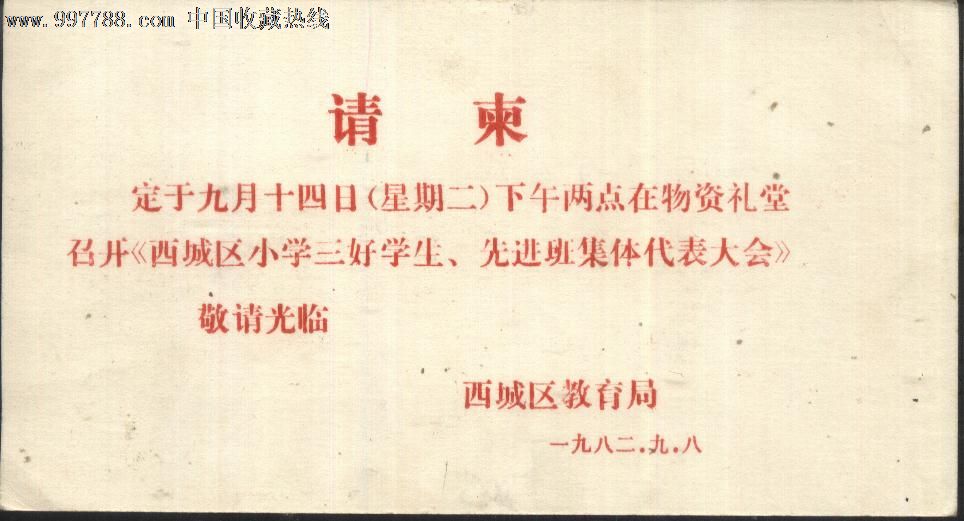 www.997788.com 中国收藏热线
请柬
定于九月十四日(星期二)下午两点在物资礼堂
召开《西城区小学三好学生、先进班集体代表大会》
敬请光临
西城区教育局
一九八二.九.八